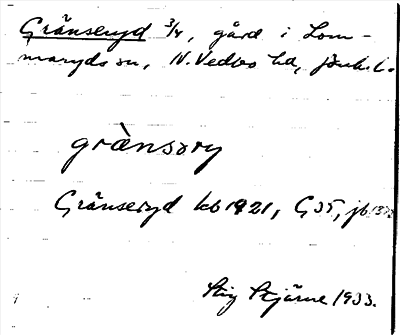 Gränseryd 3/4, gård i Lom-
maryds sn, N. Vedbo hd, Jönk. l.
grànsǝry
Gränseryd kb 1921, G35, jb
Stig Stjärne 1933.